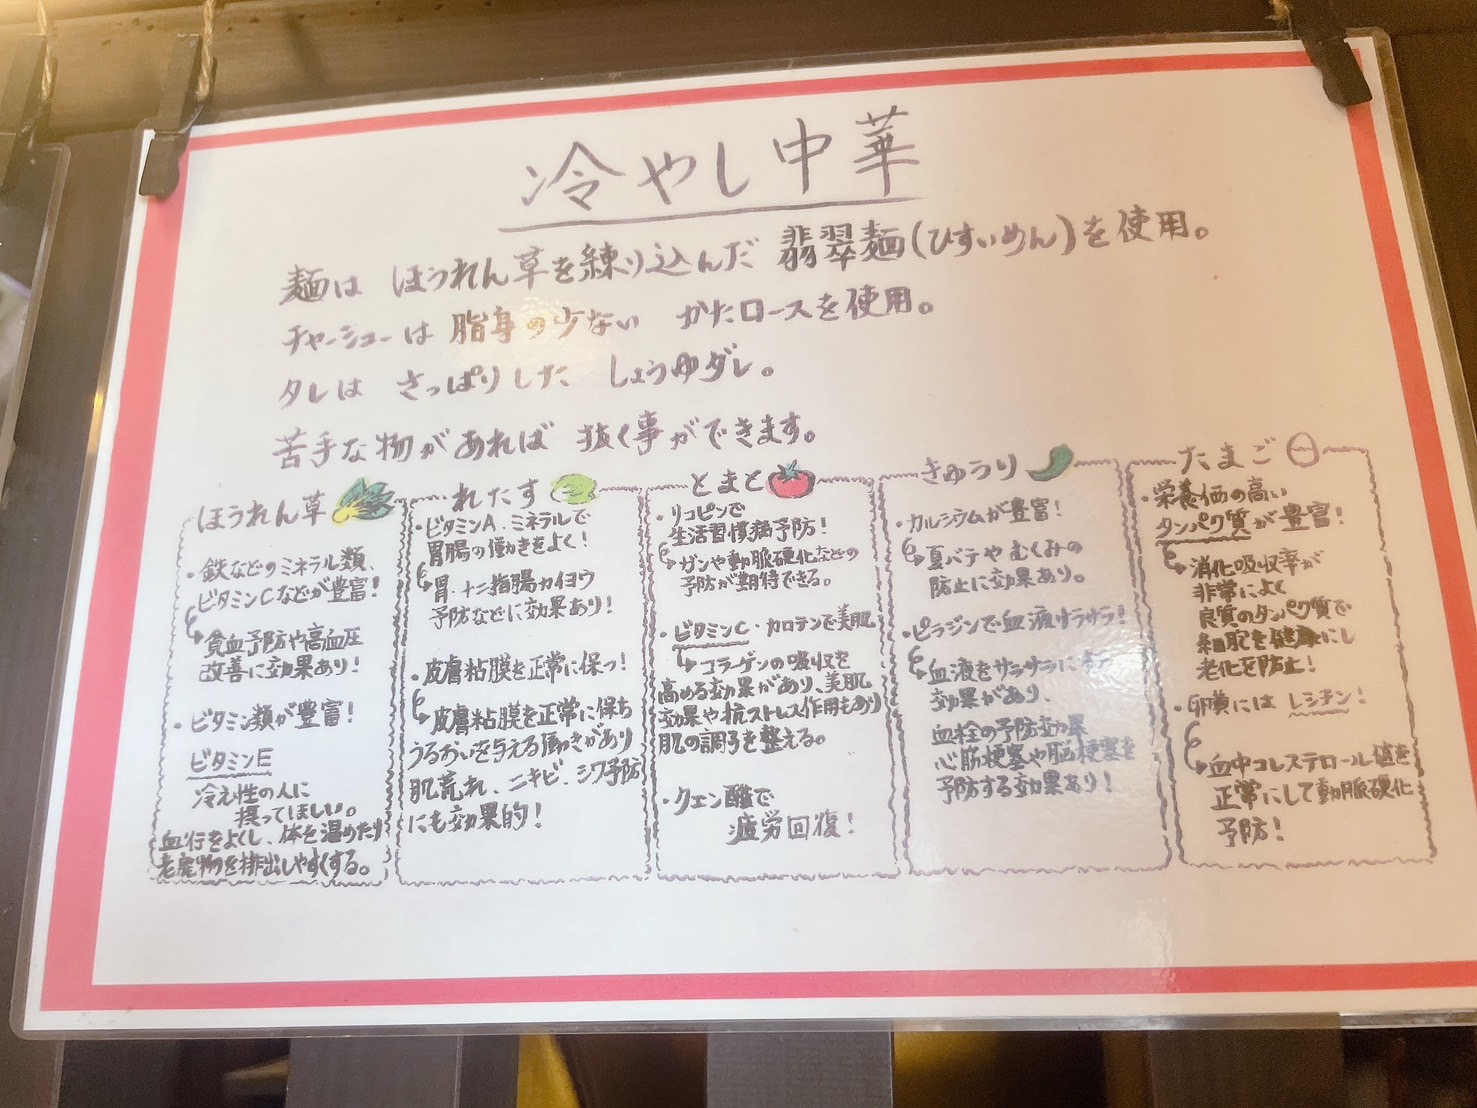 冷やし中華
麺は ほうれん草を練り込んだ 翡翠麺(ひすいめん)を使用。
チャーシューは 脂身の少ない かたロースを使用。
タレは さっぱりした しょうゆダレ。
苦手な物があれば 抜く事ができます。
ほうれん草
・鉄などのミネラル類、
ビタミンCなどが豊富!
貧血予防や高血圧
改善に効果あり!
・ビタミン類が豊富!
ビタミンE
冷え性の人に
摂ってほしい。
血行をよくし、体を温めたり
老廃物を排出しやすくする。
れたす
・ビタミンA、ミネラルで
胃腸の働きをよく!
胃・十二指腸カイヨウ
予防などに効果あり!
・皮膚粘膜を正常に保つ!
皮膚粘膜を正常に保ち
うるおいを与える働きがあり
肌荒れ、ニキビ、シワ予防
にも効果的!
とまと
・リコピンで
生活習慣病予防!
ガンや動脈硬化などの
予防が期待できる。
・ビタミンC・カロテンで美肌
コラーゲンの吸収を
高める効果があり、美肌
効果や抗ストレス作用もあり
肌の調子を整える。
・クエン酸で
疲労回復!
きゅうり
・カルシウムが豊富!
夏バテやむくみの
防止に効果あり。
・ピラジンで血液サラサラ!
血液をサラサラにする
効果があり、
血栓の予防効果
心筋梗塞や脳梗塞を
予防する効果あり!
たまご
・栄養価の高い
タンパク質が豊富!
消化吸収率が
非常によく
良質のタンパク質で
細胞を健康にし
老化を防止!
・卵黄には レシチン!
血中コレステロール値を
正常にして動脈硬化
予防!